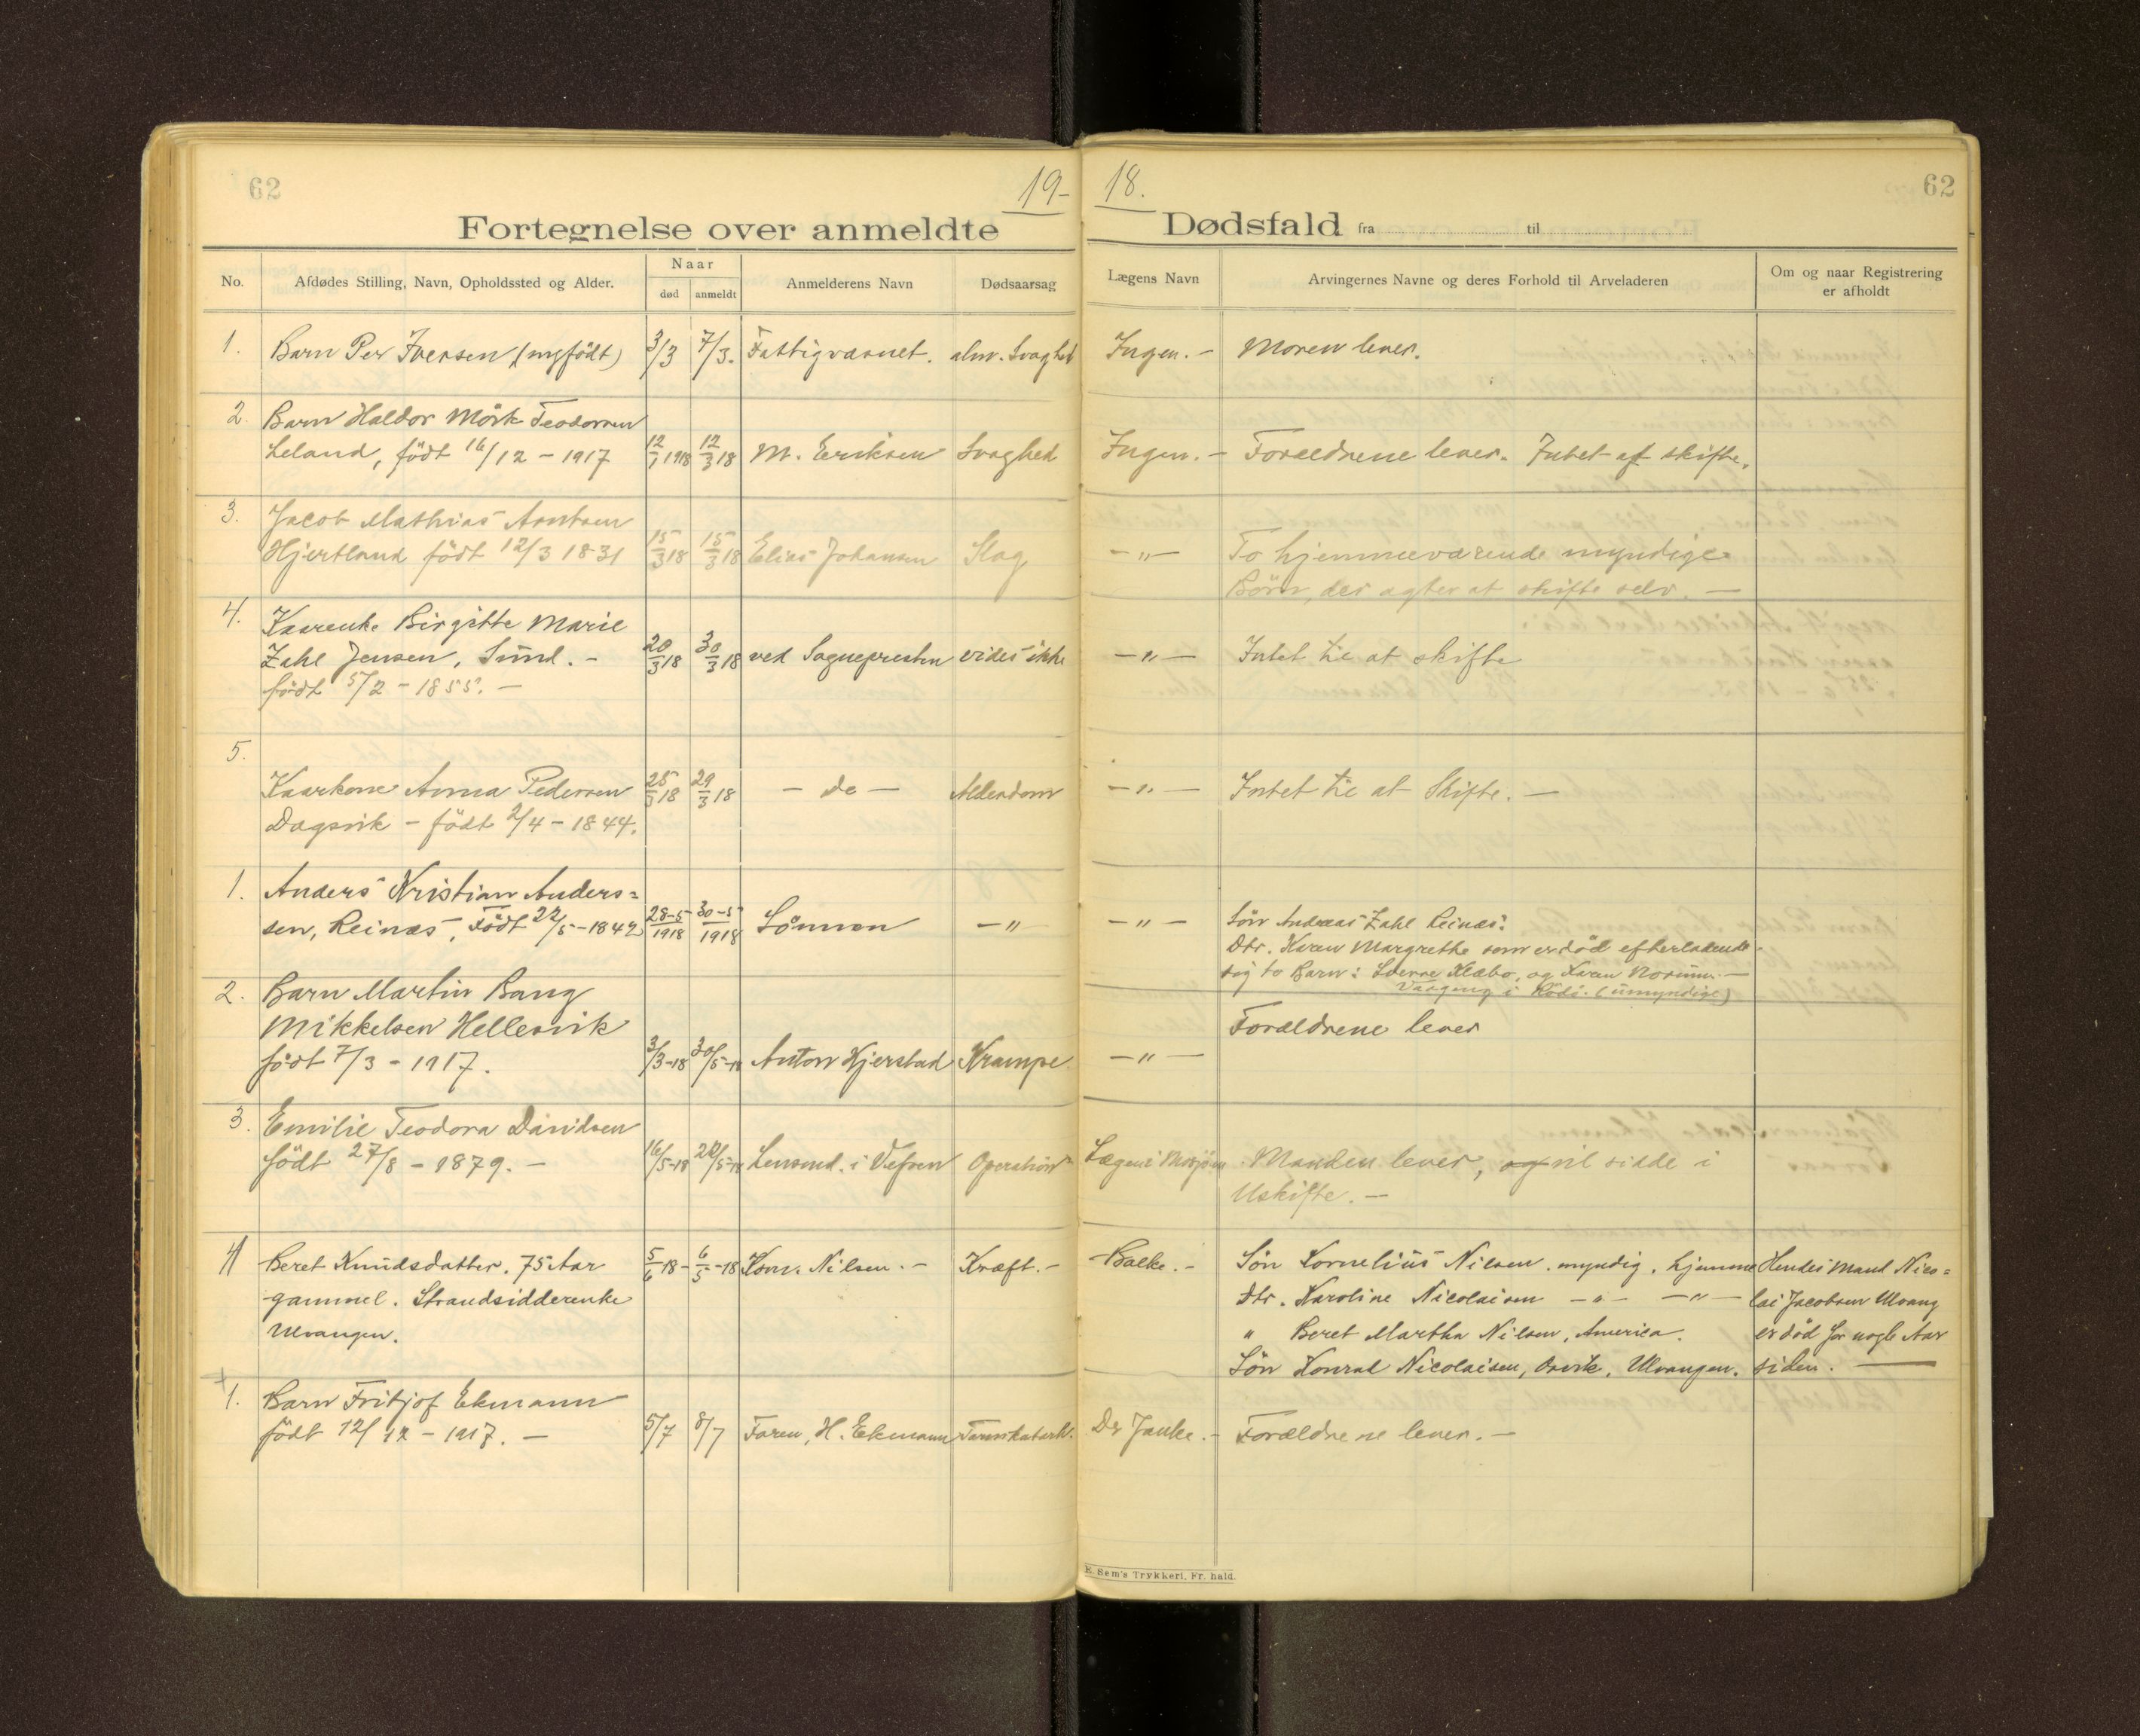 62
19-
18.
62
Fortegnelse over anmeldte
Dødsfald fra til
No.
Afdødes Stilling, Navn, Opholdssted og Alder.
Naar
død
anmeldt
Anmelderens Navn
Dødsaarsag
Lægens Navn
Arvingernes Navne og deres Forhold til Arveladeren
Om og naar Registrering
er afholdt
1. Barn Per Iversen (nyfödt) 3/3 7/3. Fattigvæsnet. alm. Svaghet Ingen. - Moren lever.
2. Barn Haldor Mörk Teodorsen
Leland, födt 16/12 - 1917 12/1 1918 12/3 18 M. Eriksen Svaghed Ingen. - Forældrene lever. Intet at skifte.
3. Jacob Mathias Arntsen
Hjertland födt 12/3 1831 15/3 18 15/3 18 Elias Johansen Slag -"- To hjemmeværende myndige
Börn, der agter at skifte selv. -
4. Kaarenke Birgitte Marie
Zahl Jensen, Sund. - 20/3 18 30/3 18 ved Sognepresten vides ikke -"- Intet til at skifte
födt 5/2 - 1855. -
5.
Kaarkone Anna Pedersen 25/3 18 29/3 18 - do - Alderdom -"- Intet til at Skifte. -
Dagsvik - födt 2/4 - 1844.
1. Anders Kristian Anders=
sen, Reinæs, Födt 22/5 - 1842 28-5/1918 30-5/1918 Sönnen -" -"- Sön Andreas Zahl Reinæs.
Dtr. Karen Margrethe som er död efterladende
sig to Barn: Sverre Klæbo, og Karen
i Rödö. (umyndige)
2. Barn Martin Bang
Mikkelsen Hellesvik Forældrene lever
födt 7/3 - 1917. 3/3-18 30/5-18 Anton Hjerstad Krampe -"-
3. Emilie Teodora Davidsen
födt 27/8 - 1879. - 16/5-18 20/5-18 Lensmd. i Vefsen Operation Lægen i Mosjöen Manden lever, og vil sidde i
Uskifte. -
4 Beret Knudsdatter. 75 Aar 5/6 18 - 6/5 -18 Korn. Nilsen. - Kræft. - Balke. - Sön Kornelius Nilsen. myndig. hjemme Hendes Mand Nico=
gammel. Strandsidderenke Dtr. Karoline Nicolaisen -"- -"- lai Jacobsen Ulvang
Ulvangen. " Beret Martha Nilsen, America. er död for nogle Aar
Sön Konrad Nicolaisen, Ulvangen. siden.
1. Barn Fritjof Ekmann
födt 12/12 - 1917. - 5/7 8/7 Faren, H. Ekmann Tarmkatarh. Dr Janke. - Forældrene lever. -
E. Sem's Trykkeri, Fr. hald.